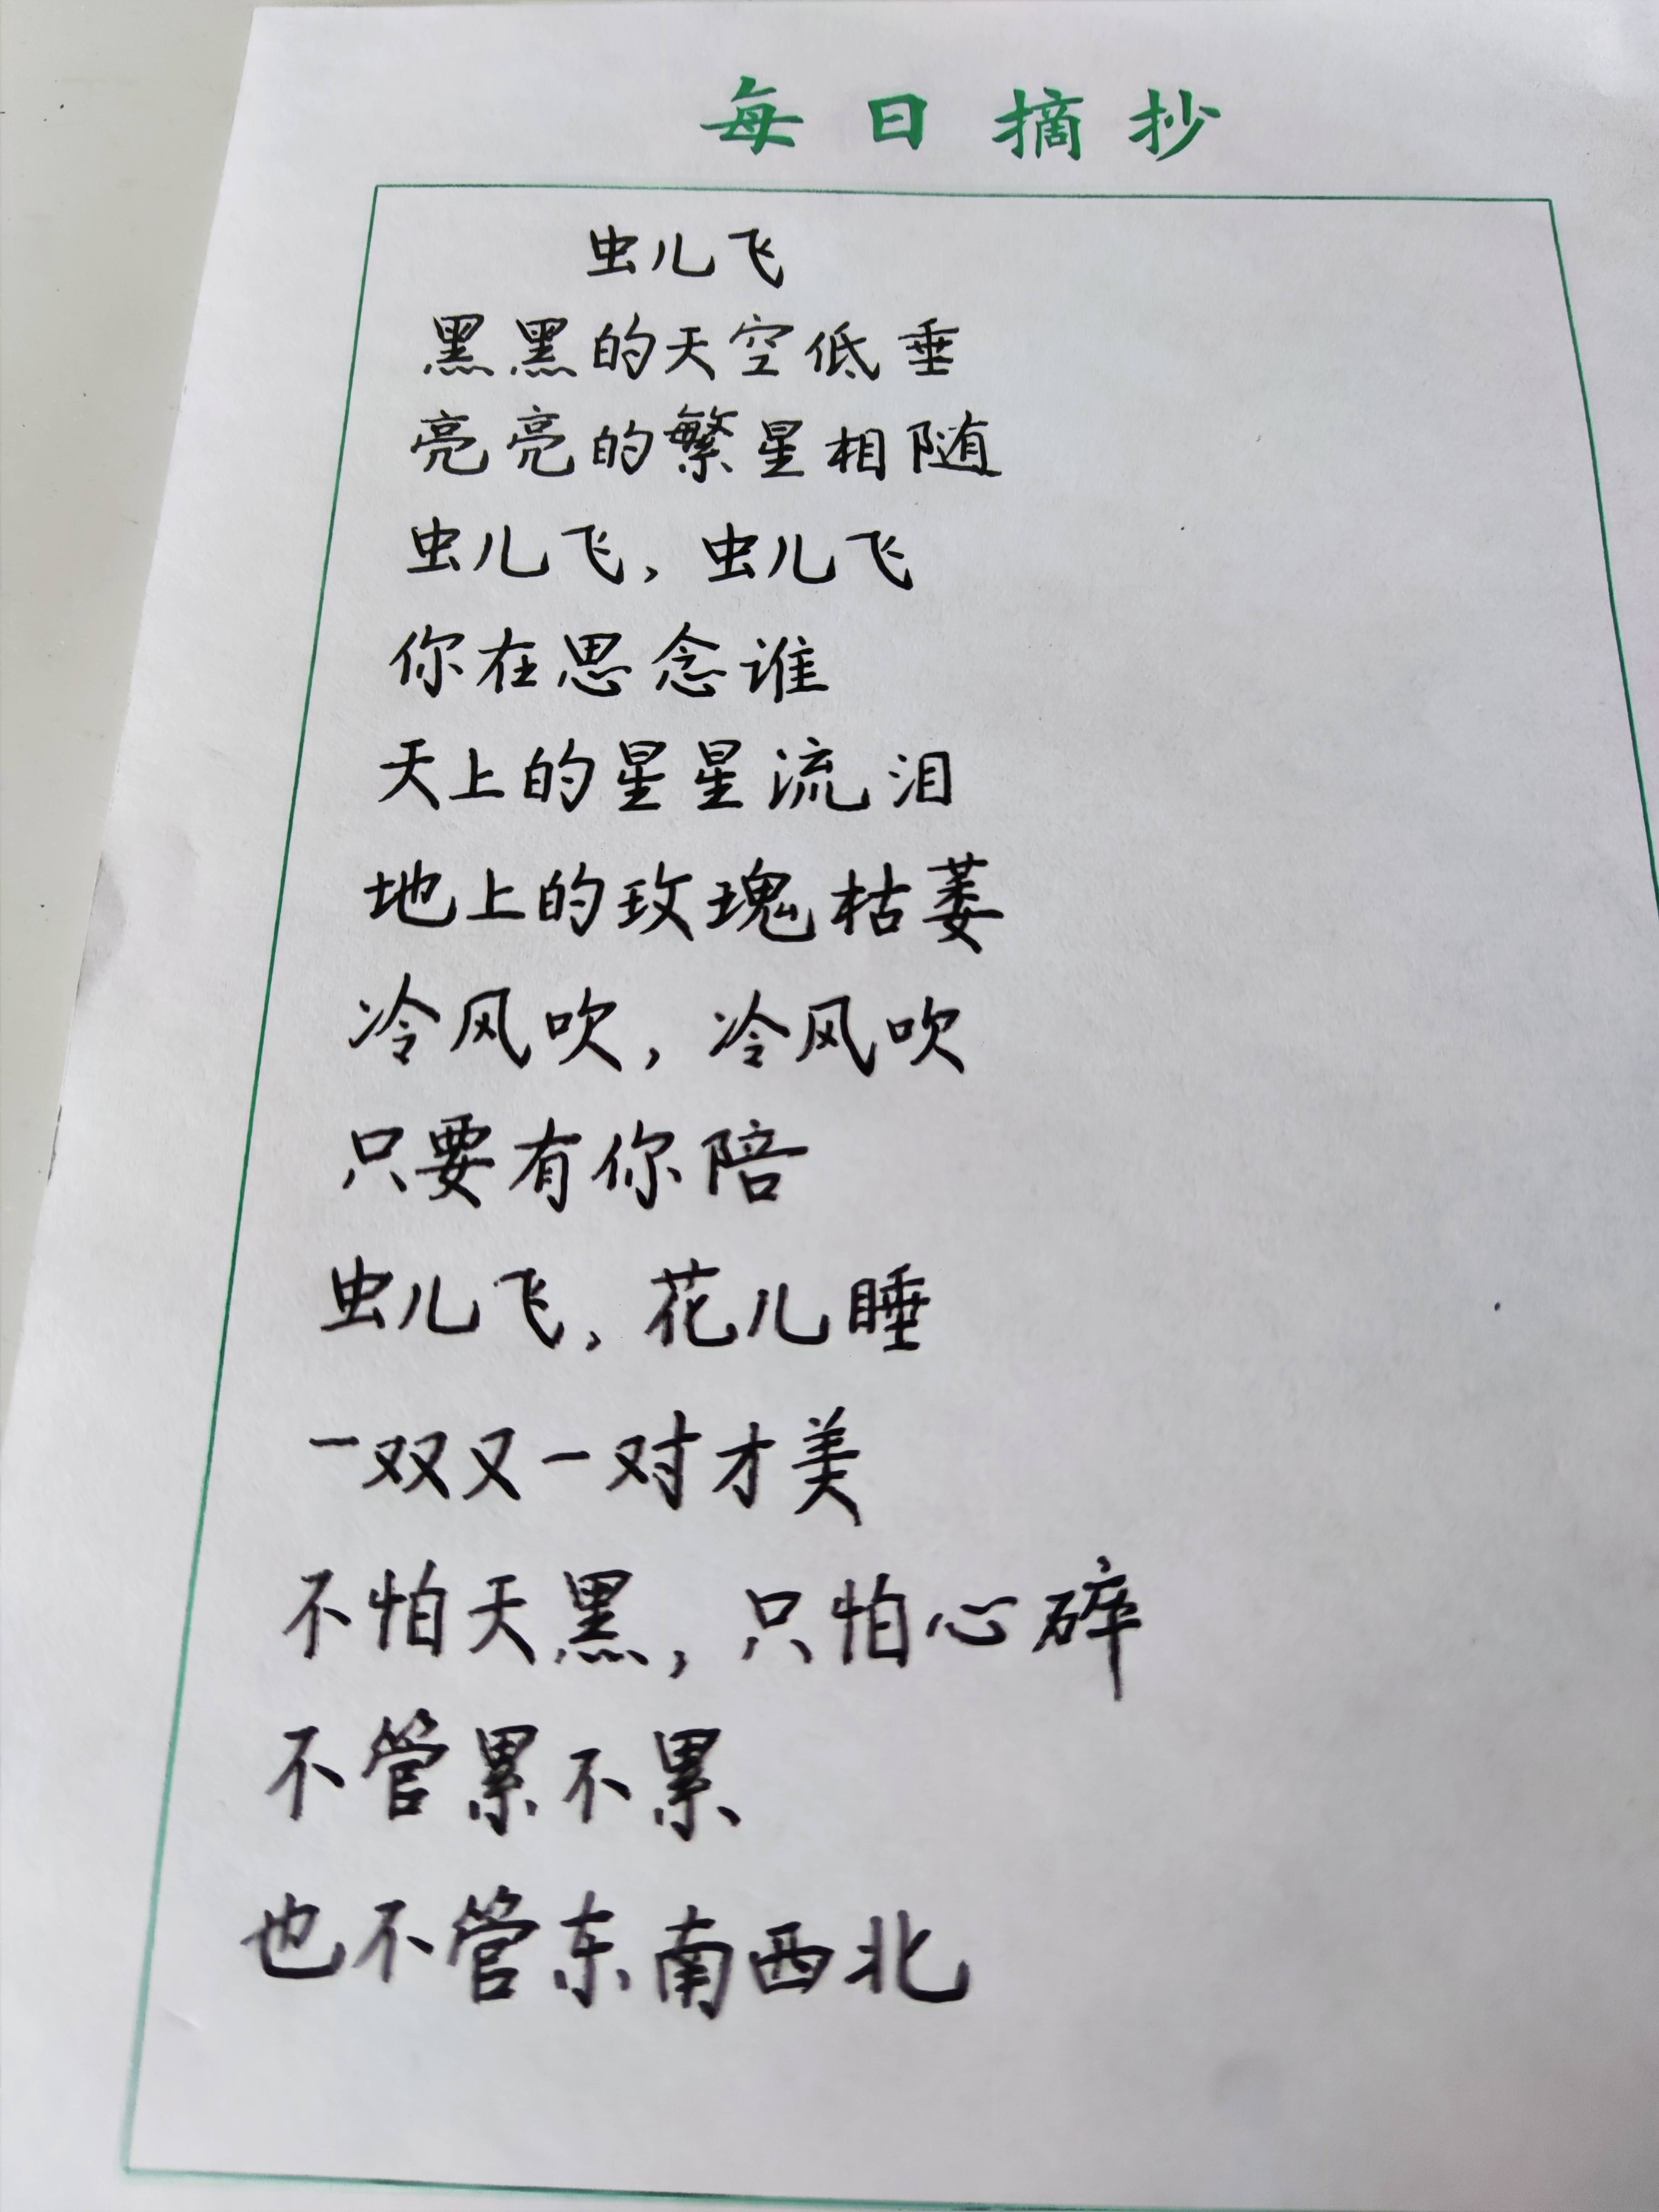 每日摘抄
虫儿飞
黑黑的天空低垂
亮亮的繁星相随
虫儿飞，虫儿飞
你在思念谁
天上的星星流泪
地上的玫瑰枯萎
冷风吹，冷风吹
只要有你陪
虫儿飞，花儿睡
一双又一对才美
不怕天黑，只怕心碎
不管累不累
也不管东南西北